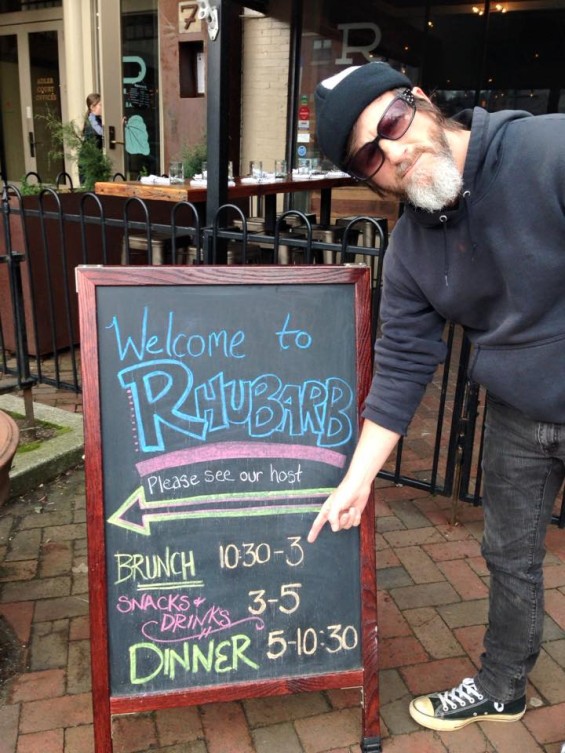 R
Welcome to
RHUBARB
Please see our host
BRUNCH 10:30-3
SNACKS + DRINKS 3-5
DINNER 5-10:30